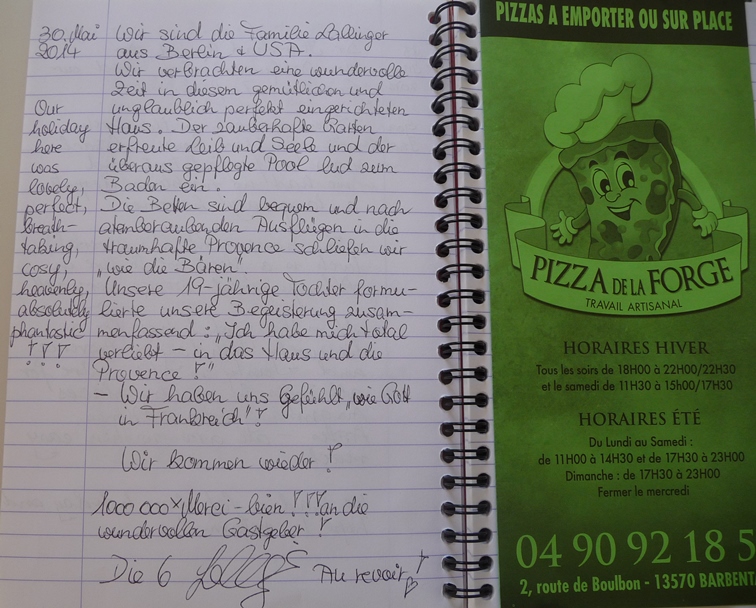 30. Mai
2014
Our
holiday
here
was
lovely,
perfect,
breath-
taking,
cosy,
heavenly,
absolutely
phantastic
!!!
Wir sind die Familie
aus Berlin & USA.
Wir verbrachten eine wundervolle
Zeit in diesem gemütlichen und
unglaublich perfekt eingerichteten
Haus. Der zauberhafte Garten
erfreute Leib und Seele und der
überaus gepflegte Pool lud zum
Baden ein.
Die Betten sind bequem und nach
atemberaubenden Ausflügen in die
traumhafte Provence schliefen wir
„wie die Bären".
Unsere 19-jährige Tochter formu-
lierte unsere Begeisterung zusam-
menfassend: „Ich habe mich total
verliebt – in das Haus und die
Provence!"
– Wir haben uns gefühlt „wie Gott
in Frankreich"!
Wir kommen wieder!
1000 000 x Merci-bien!!! an die
wundervollen Gastgeber!
Die 6
Au revoir!
PIZZAS A EMPORTER OU SUR PLACE
PIZZA DE LA FORGE
TRAVAIL ARTISANAL
HORAIRES HIVER
Tous les soirs de 18H00 à 22H00/22H30
et le samedi de 11H30 à 15h00/17H30
HORAIRES ÉTÉ
Du Lundi au Samedi :
de 11H00 à 14H30 et de 17H30 à 23H00
Dimanche : de 17H30 à 23H00
Fermer le mercredi
04 90 92 18 5
2, route de Boulbon - 13570 BARBENT